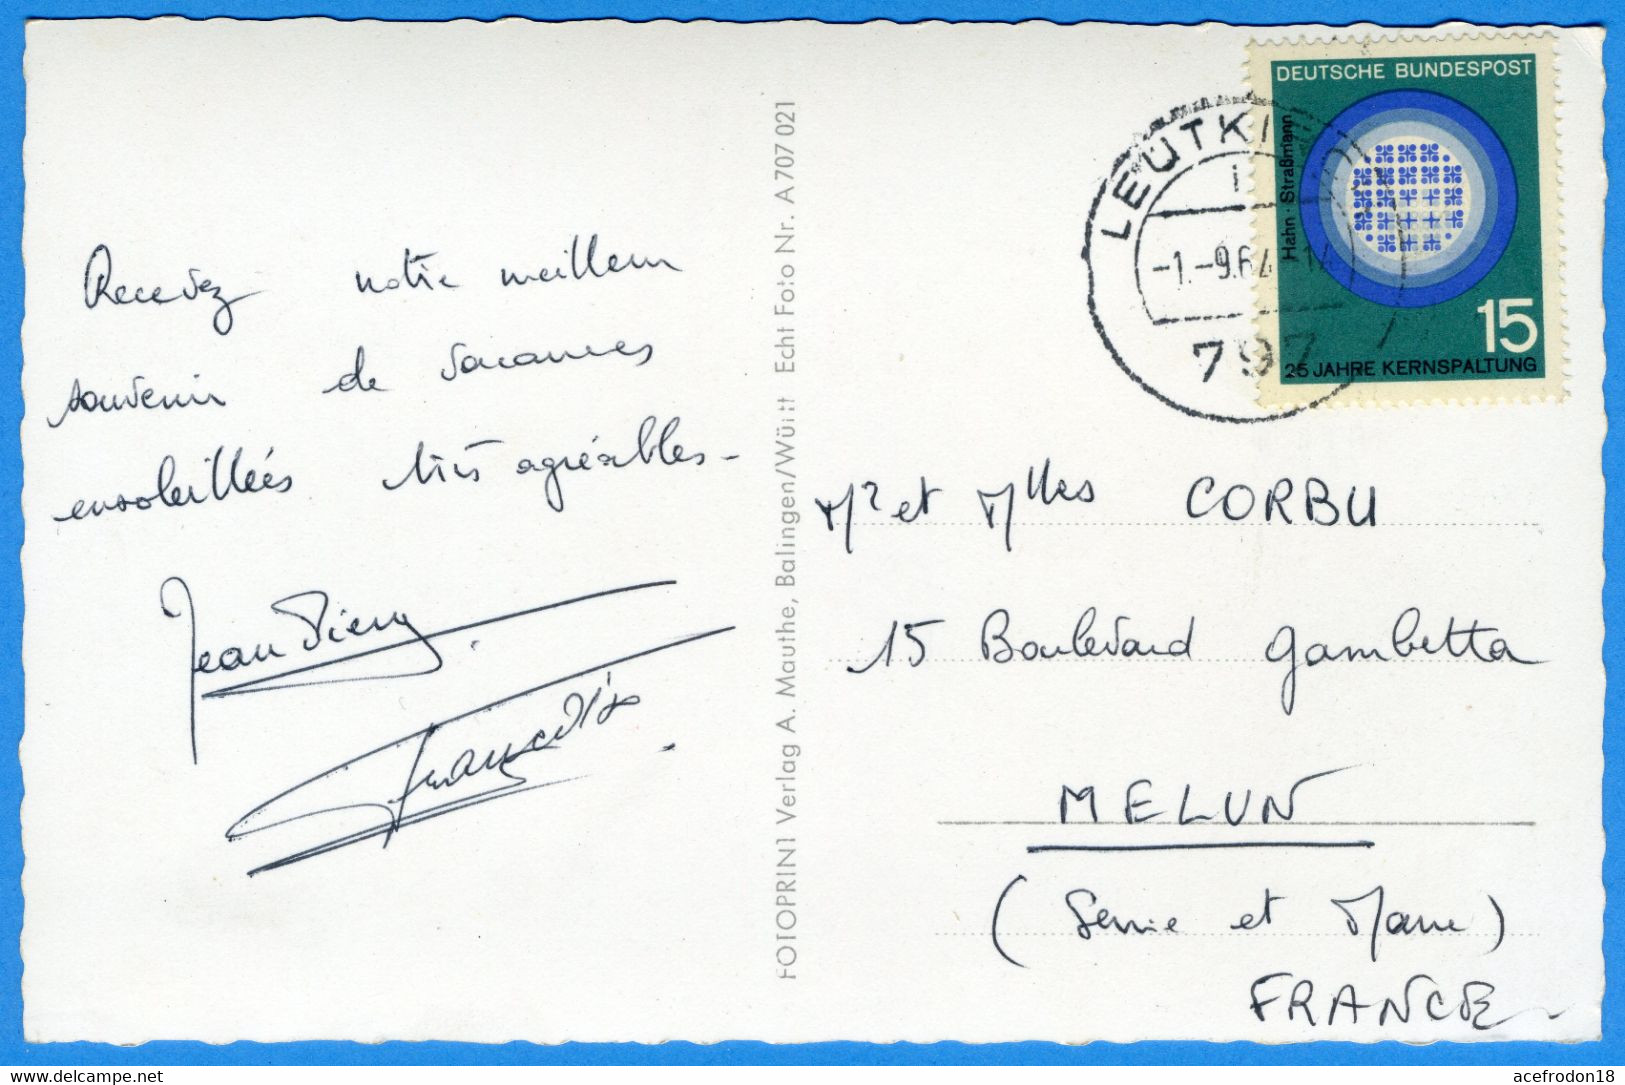 Recevez notre meilleur
souvenir de vacances
ensoleillées très agréables -
Jean Pierre
Françoise
FOTOPRINT Verlag A. Mauthe, Balingen/Württ Echt Foto Nr. A 707 021
DEUTSCHE BUNDESPOST
Hahn · Straßmann
15
25 JAHRE KERNSPALTUNG
LEUTKI
-1.-9.64-14
797
Mr et Mlles CORBU
15 Boulevard Gambetta
MELUN
(Seine et Marne)
FRANCE
acefrodon18